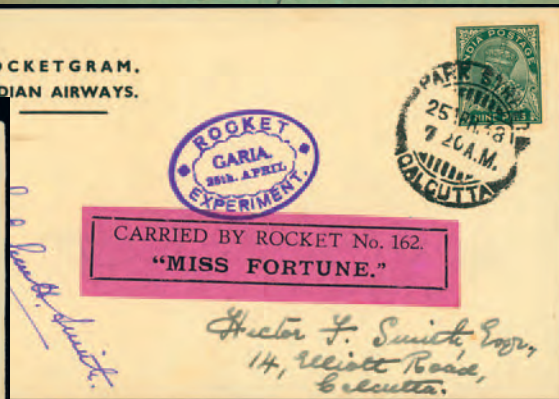 OCKETGRAM.
DIAN AIRWAYS.
DIA POSTAGE
NINE PIES
PARK
25
7 20 A.M.
CALCUTTA
ROCKET
GARIA.
25th. APRIL
EXPERIMENT.
CARRIED BY ROCKET No. 162.
"MISS FORTUNE."
Smith.
Hector F. Smith, Esqr.,
14, Elliott Road,
Calcutta.